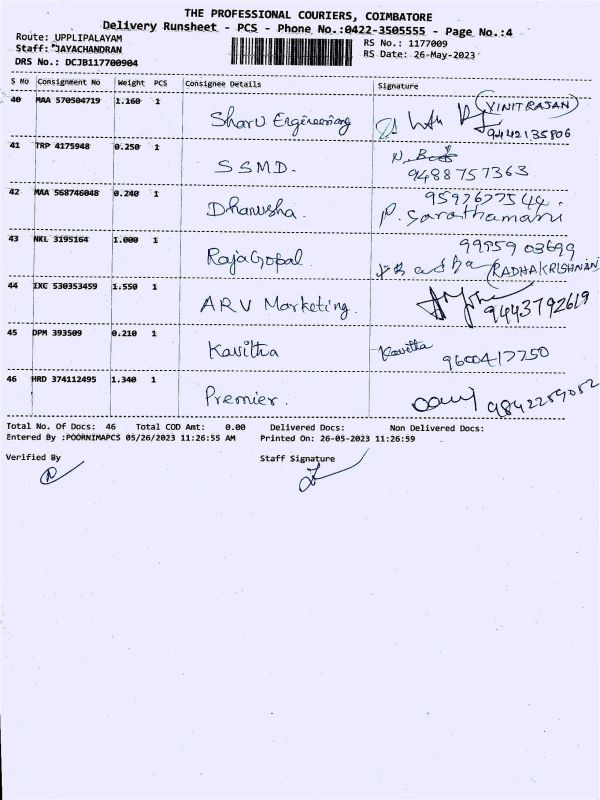 THE PROFESSIONAL COURIERS, COIMBATORE
Delivery Runsheet - PCS - Phone No.:0422-3505555 - Page No.:4
Route: UPPLIPALAYAM
Staff: JAYACHANDRAN
DRS No.: DCJB117700904
RS No.: 1177009
RS Date: 26-May-2023
S No Consignment No Weight PCS Consignee Details Signature
40 MAA 570504719 1.160 1 Sharv Engineering VINIT RAJAN
9442135806
41 TRP 4175948 0.250 1 SSMD.
9488757363
42 MAA 568746048 0.240 1 Dhanusha. 9597677544.
43 NKL 3195164 1.000 1 RajaGopal 99959 03699
RADHAKRISHNAN
44 IXC 530353459 1.550 1 ARV Marketing. 9443792619
45 DPM 393509 0.210 1 Kavitha Kavitha 9600417750
46 HRD 374112495 1.340 1 Premier. 9842289052
Total No. Of Docs: 46 Total COD Amt: 0.00 Delivered Docs: Non Delivered Docs:
Entered By :POORNIMAPCS 05/26/2023 11:26:55 AM Printed On: 26-05-2023 11:26:59
Verified By Staff Signature